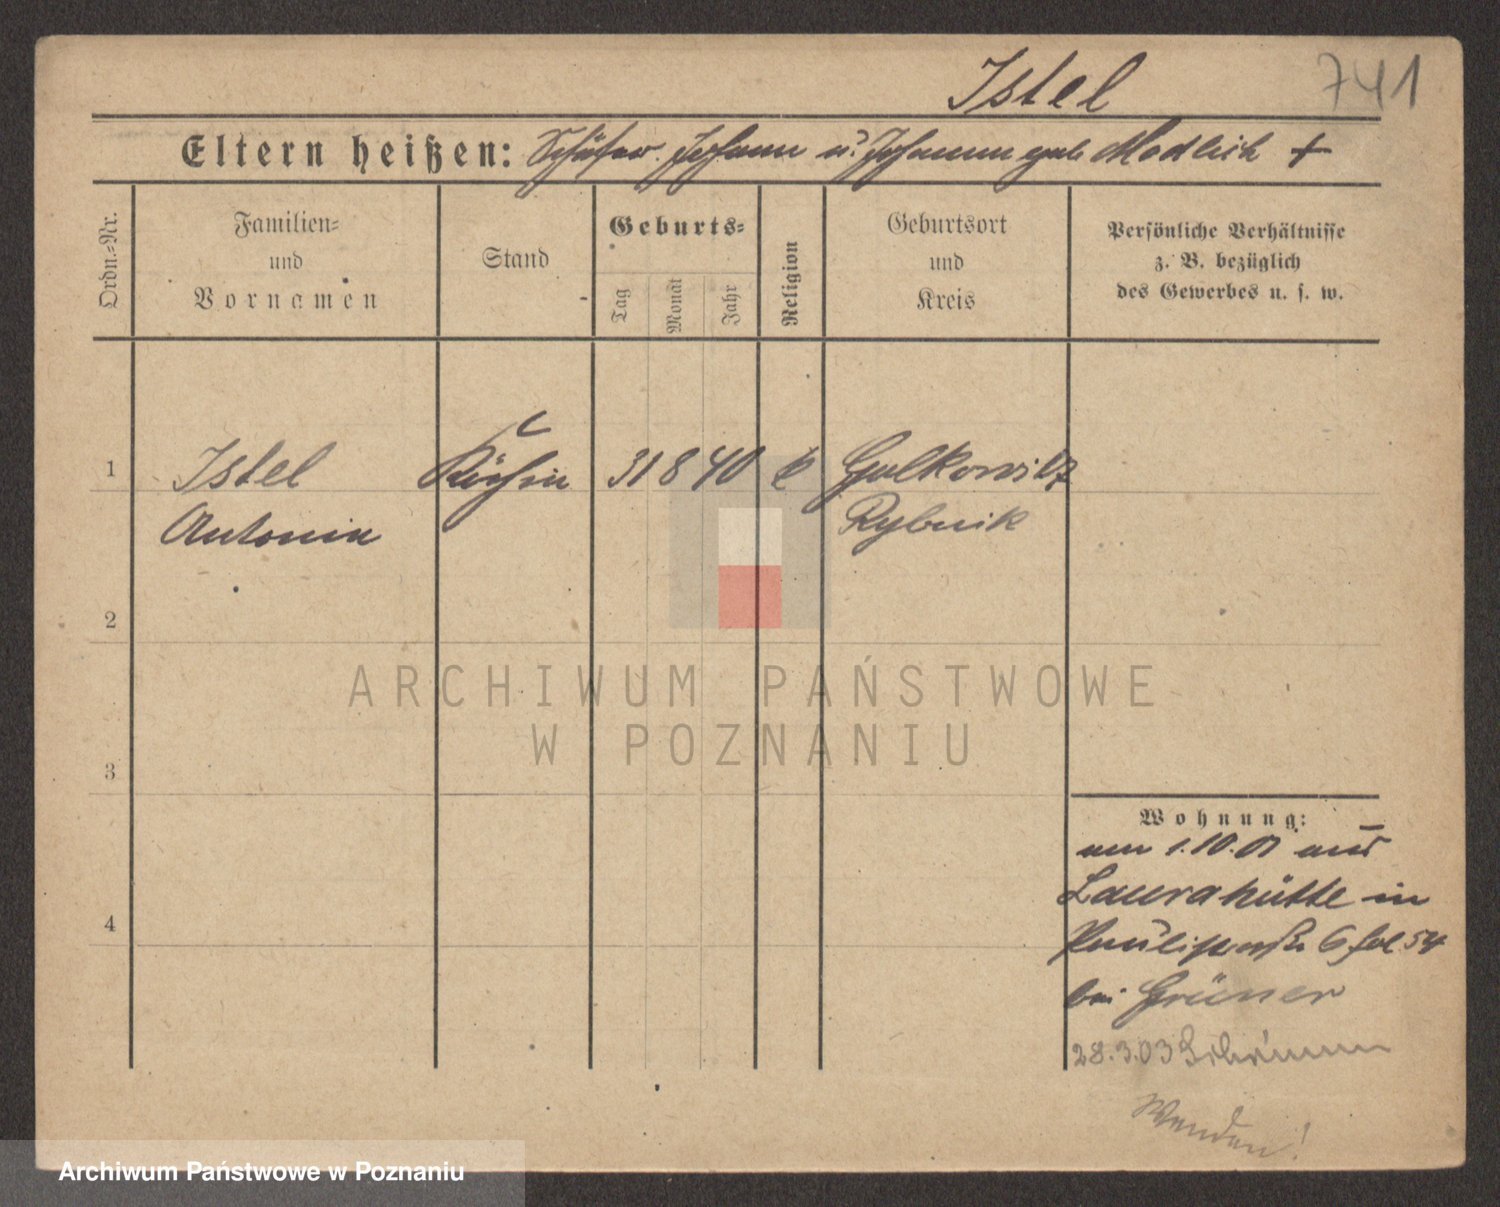 Istel 741
Eltern heißen: Schäfer Johann u. Johanna geb Modlich +
Ordn.-Nr.
Familien-
und
Vornamen
Stand
Geburts-
Tag
Monat
Jahr
Religion
Geburtsort
und
Kreis
Persönliche Verhältnisse
z. B. bezüglich
des Gewerbes u. s. w.
1 Istel Köchin 31 8 40 k Golkowitz
Antonia Rybnik
2
3
4
ARCHIWUM PAŃSTWOWE
W POZNANIU
Wohnung:
am 1.10.01 aus
Laurahütte in
6 fol 54
bei Grüner
28.3.03
Wenden!
Archiwum Państwowe w Poznaniu